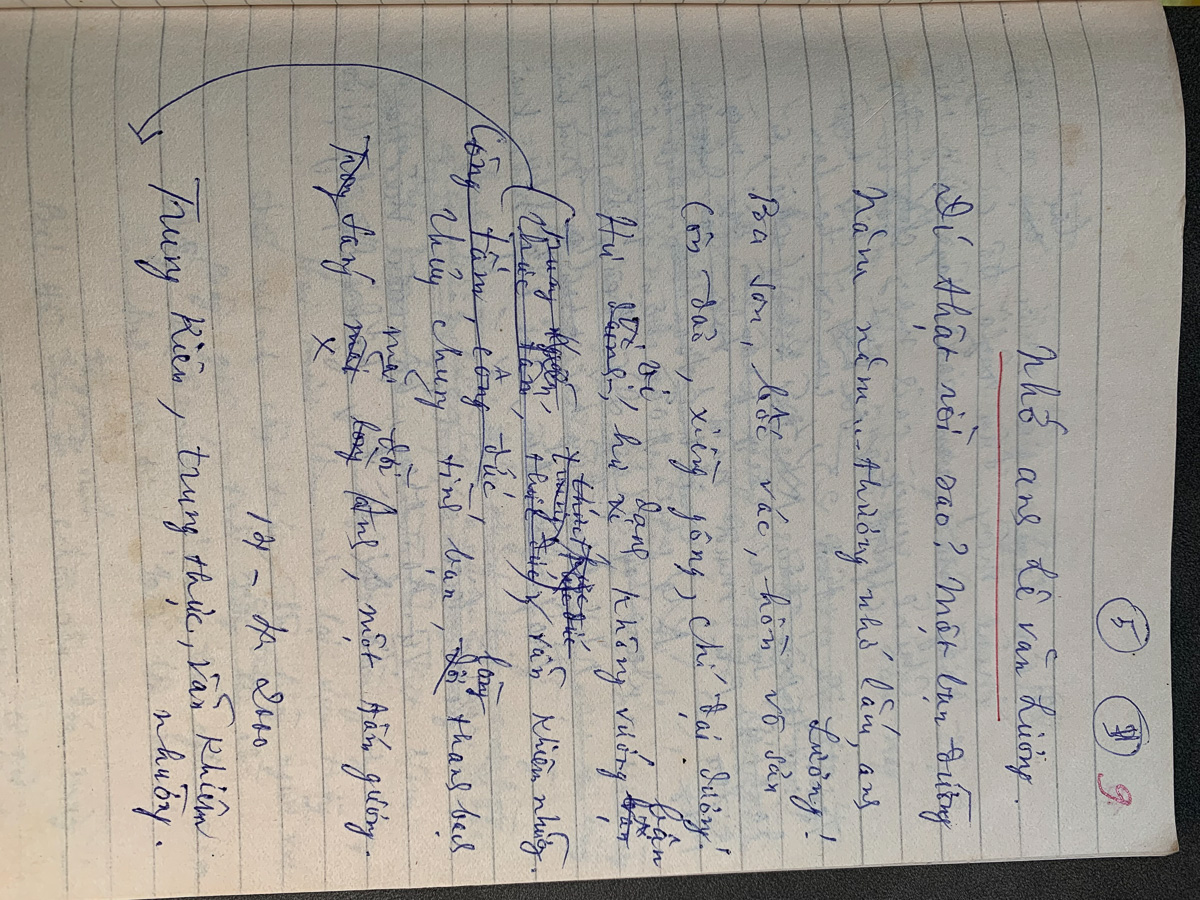 5 9
Nhớ anh Lê Văn Lương.
Đi thật rồi sao? Một bạn đường
Năm năm... thương nhớ lắm, anh
Lương!
Ba son, bốc vác, hồn vô sản
Côn đảo, xiềng gông, chí đại dương!
vị, danh bận
Hư hư không vướng
Trung Kiên, trung thực đức
Thực tâm, thực đức, vẫn khiêm nhường.
Công tâm, công đức,
lòng
Thủy chung tình bạn, đời thanh bạch
mãi đời
Trong sáng mãi lòng Anh, một tấm gương.
x
14 - 2000
Trung Kiên, trung thực, vẫn khiêm
nhường.